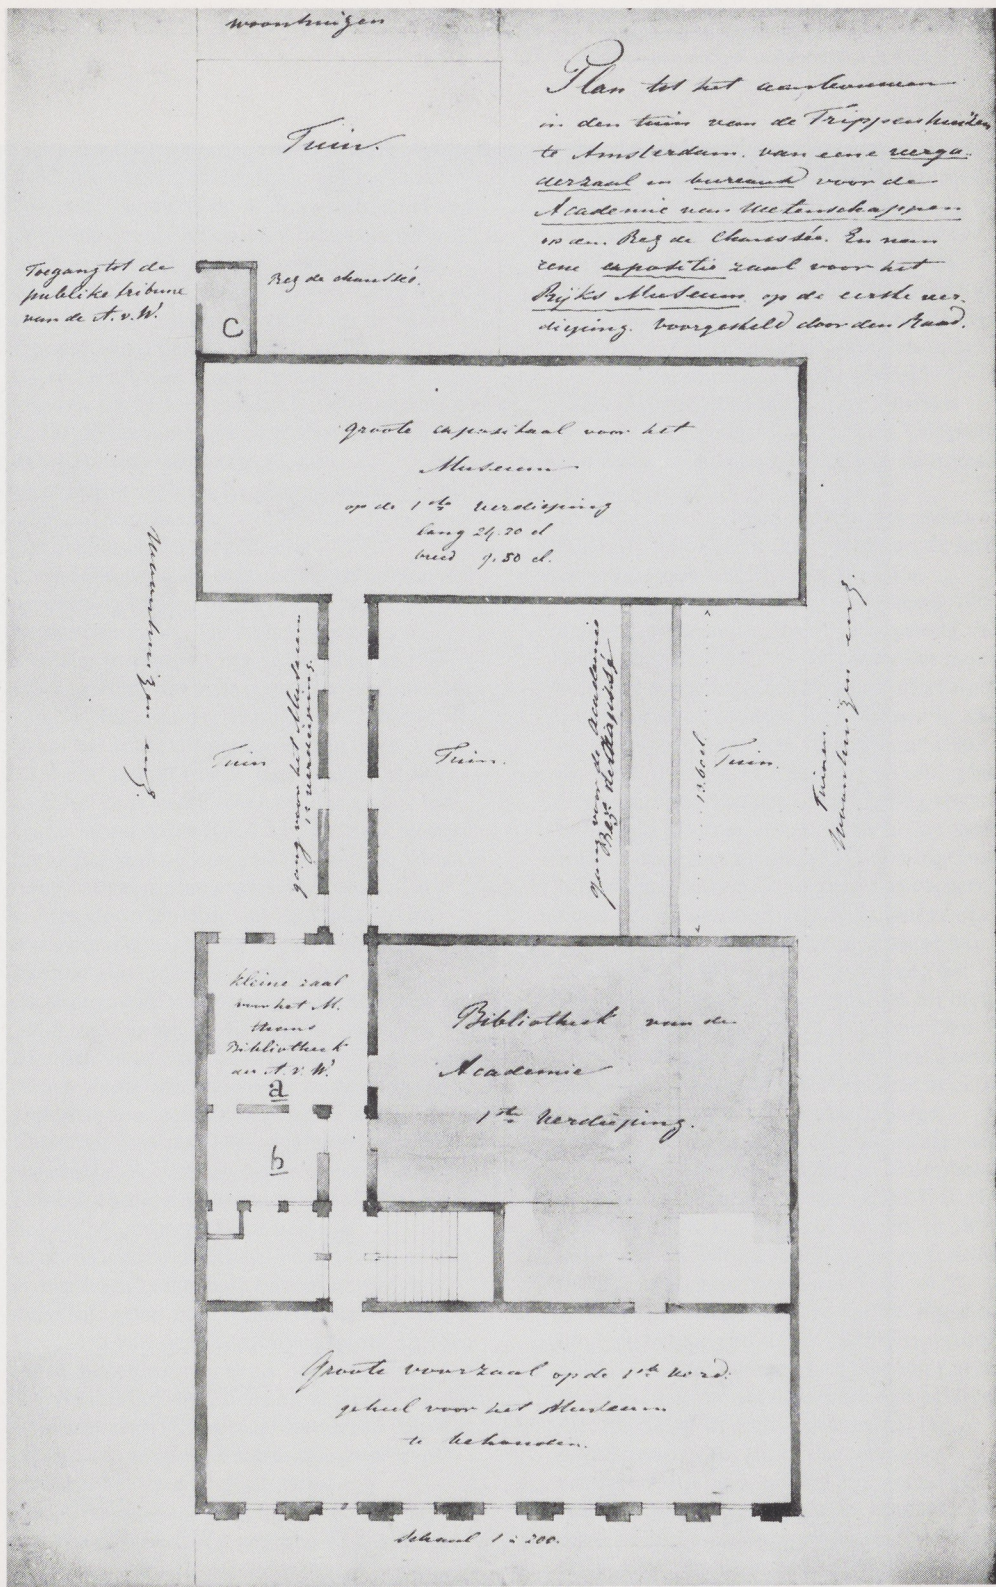 woonhuizen
Tuin.
Plan tot het aanbouwen
in den tuin van de Trippenhuizen
te Amsterdam. van eene verga-
derzaal en bureaux voor de
Academie van Wetenschappen
op den Rez de Chaussée. En van
eene expositie zaal voor het
Rijks Museum op de eerste ver-
dieping. voorgesteld door den Raad.
Toegang tot de
publike tribune
van de A. v. W.
Rez de chaussée.
C
groote expositiezaal voor het
Museum
op de 1ste verdieping
lang 24.20 el
breed 9.50 el.
Woonhuizen enz.
gang voor het Museum
1e verdieping.
Tuin
Tuin.
gang voor de Academie
Rez de Chaussé
13.60 el.
Tuin.
Tuinen
Woonhuizen enz.
kleine zaal
van het M.
thans
Bibliotheek
der A. v. W.
a
b
Bibliotheek van de
Academie
1ste Verdieping.
Groote voorzaal op de 1ste verd.
geheel voor het Museum
te behouden.
Schaal 1 à 200.